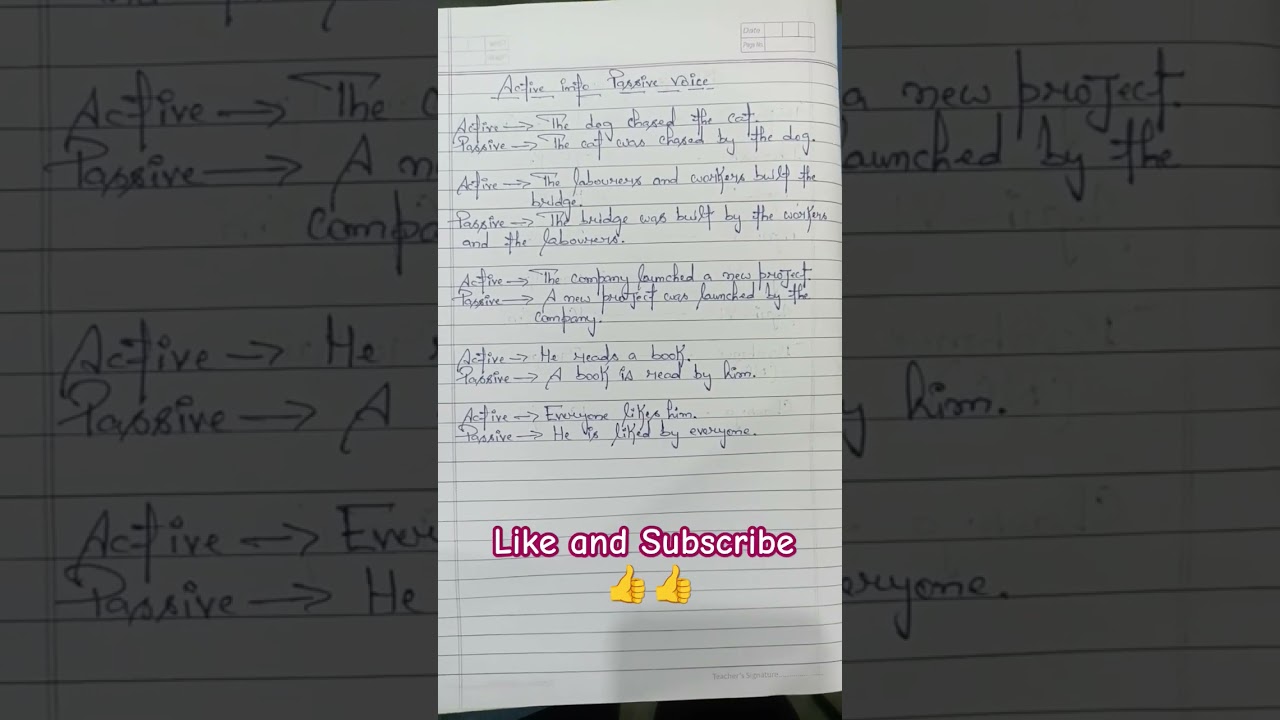 Date
Page No.
Active into Passive voice
Active → The dog chased the cat.
Passive → The cat was chased by the dog.
Active → The labourers and workers built the
bridge.
Passive → The bridge was built by the workers
and the labourers.
Active → The company launched a new project.
Passive → A new project was launched by the
company.
Active → He reads a book.
Passive → A book is read by him.
Active → Everyone likes him.
Passive → He is liked by everyone.
Like and Subscribe
👍👍
Teacher's Signature